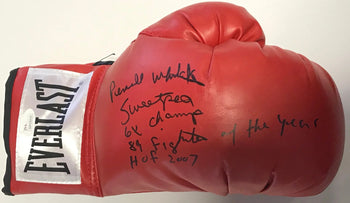 EVERLAST
Pernell Whitaker
Sweetpea
6X Champ
89 Fighter of the Year
HOF 2007